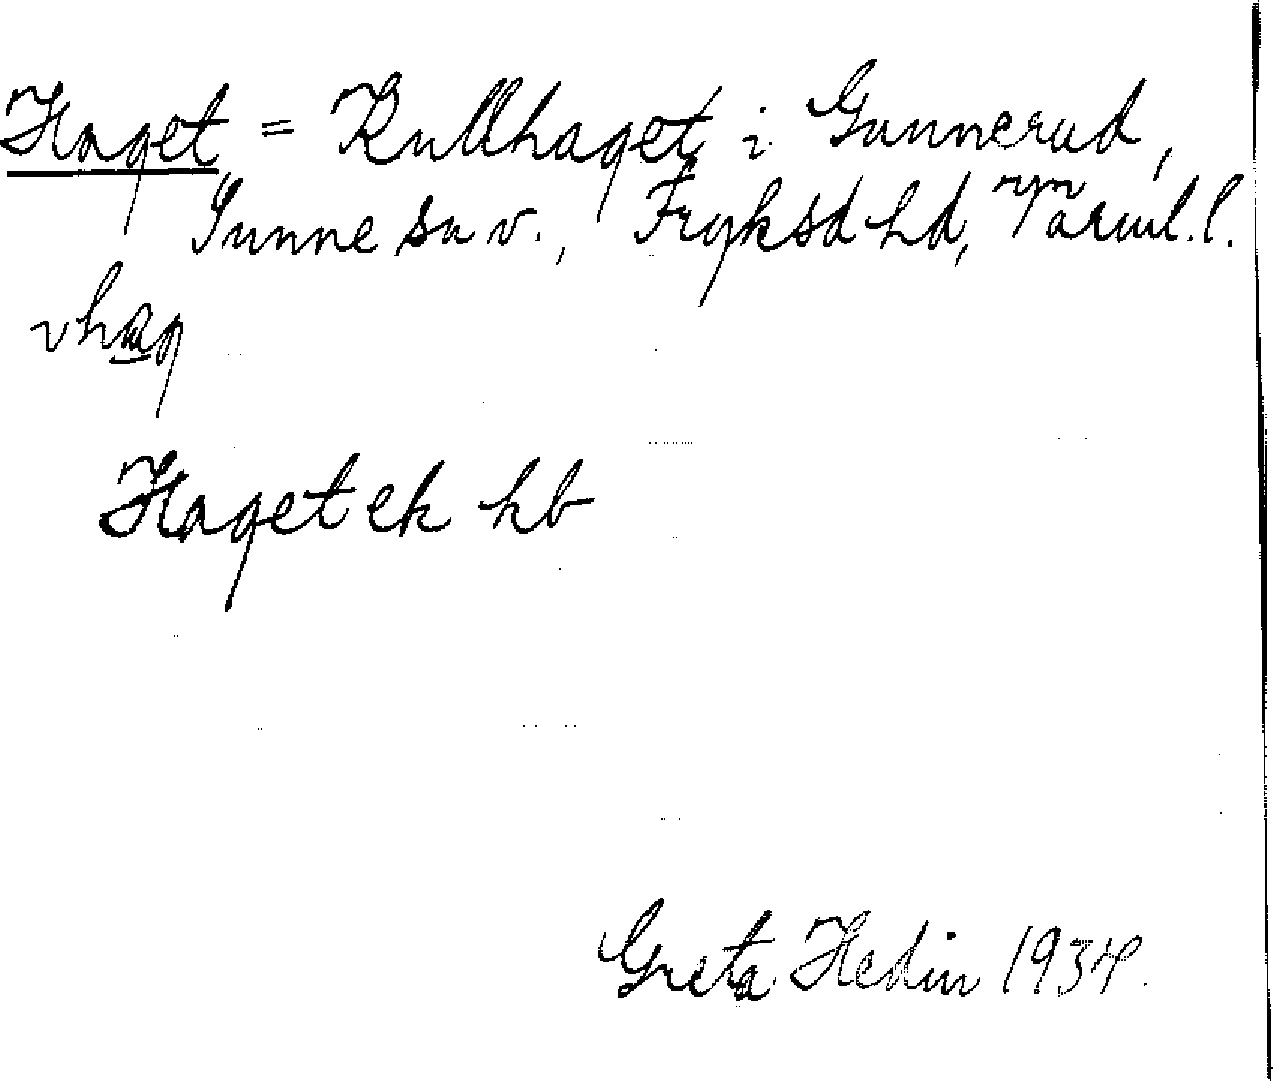 Haget = Kullhaget i Gunnerud,
Sunne sn v., Fryksd hd, Värml. l.
vhag
Haget ek kb
Greta Hedin 1934.